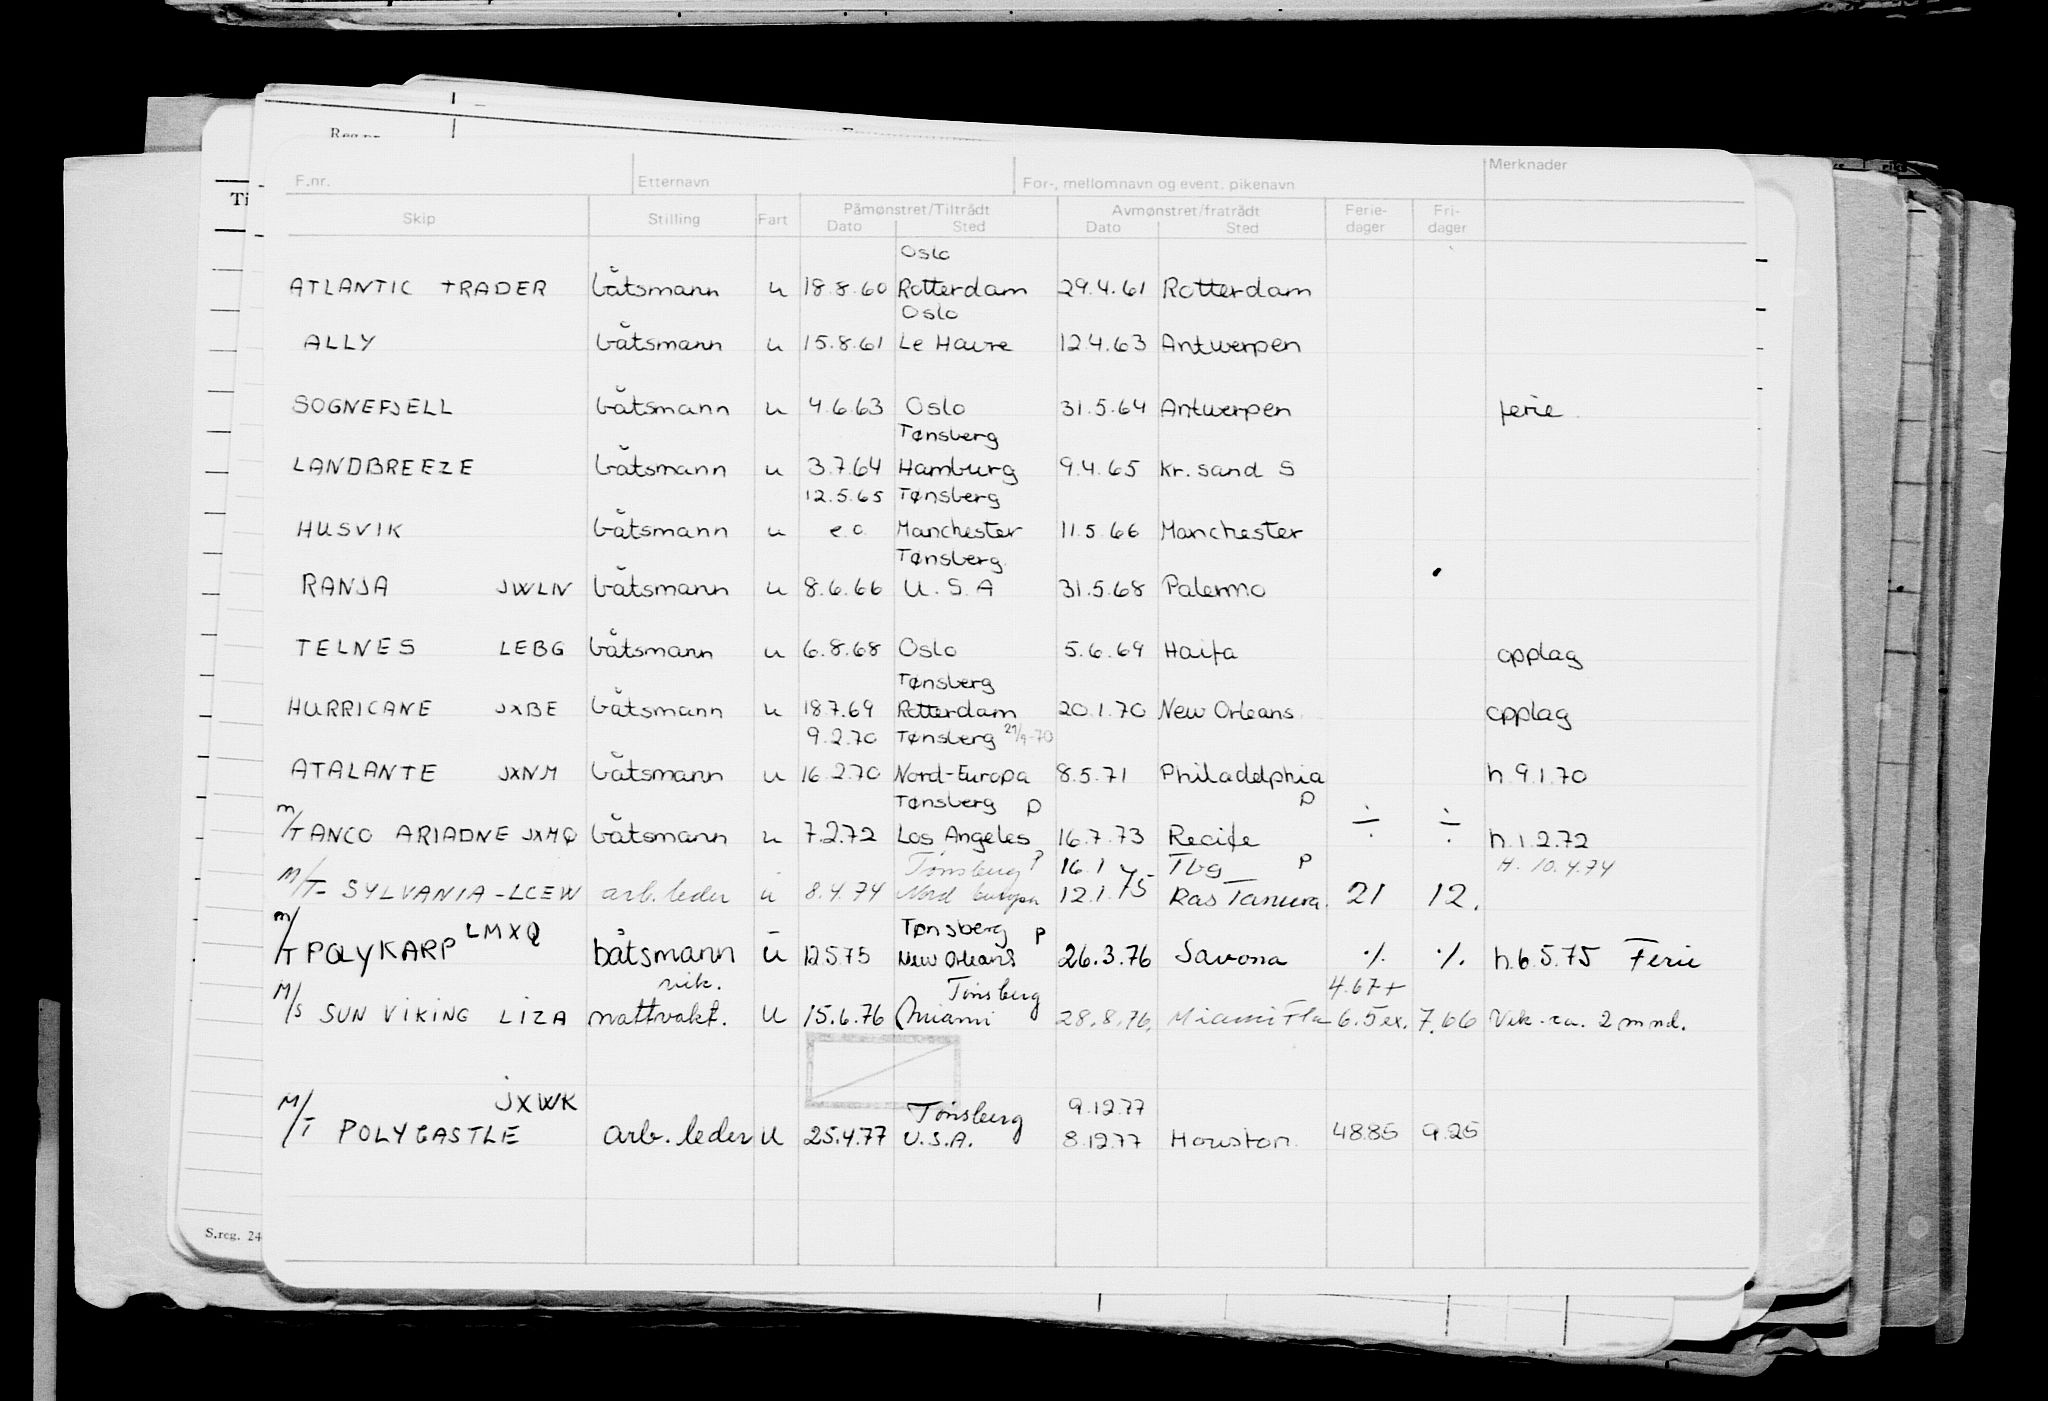 Reg.nr.
Ti
F.nr. Etternavn For-, mellomnavn og event. pikenavn Merknader
Skip Stilling Fart Påmønstret/Tiltrådt Avmønstret/fratrådt Ferie- Fri-
Dato Sted Dato Sted dager dager
Oslo
ATLANTIC TRADER båtsmann u 18.8.60 Rotterdam 29.4.61 Rotterdam
Oslo
ALLY båtsmann u 15.8.61 Le Havre 12.4.63 Antwerpen
SOGNEFJELL båtsmann u 4.6.63 Oslo 31.5.64 Antwerpen ferie
Tønsberg
LANDBREEZE båtsmann u 3.7.64 Hamburg 9.4.65 Kr. sand S
12.5.65 Tønsberg
HUSVIK båtsmann u e.o. Manchester 11.5.66 Manchester
Tønsberg
RANJA JWLN båtsmann u 8.6.66 U.S.A 31.5.68 Palermo
TELNES LEBG båtsmann u 6.8.68 Oslo 5.6.69 Haifa opplag
Tønsberg
HURRICANE JXBE båtsmann u 18.7.69 Rotterdam 20.1.70 New Orleans opplag
9.2.70 Tønsberg
ATALANTE JXNM båtsmann u 16.2.70 Nord-Europa 8.5.71 Philadelphia h.9.1.70
Tønsberg P P
M/T ANCO ARIADNE JXMQ båtsmann u 7.2.72 Los Angeles 16.7.73 Recife ÷ ÷ h.1.2.72
Tønsberg P 16.1 Tbg P H. 10.4.74
M/T SYLVANIA-LCEW arb.leder u 8.4.74 Nord Europa 12.1.75 Ras Tanura 21 12.
LMXQ Tønsberg P
M/T POLYKARP båtsmann u 12.5.75 New Orleans 26.3.76 Savona % %. h.6.5.75 Ferie
vik. Tønsberg 4.67+
M/S SUN VIKING LIZA nattvakt. U 15.6.76 Miami 28.8.76 Miami Fla 6.5ex. 7.66 Vik. ca. 2 mnd.
JXWK Tønsberg 9.12.77
M/T POLYCASTLE arb. leder U 25.4.77 U.S.A. 8.12.77 Houston. 48.85 9.25
S.reg. 24